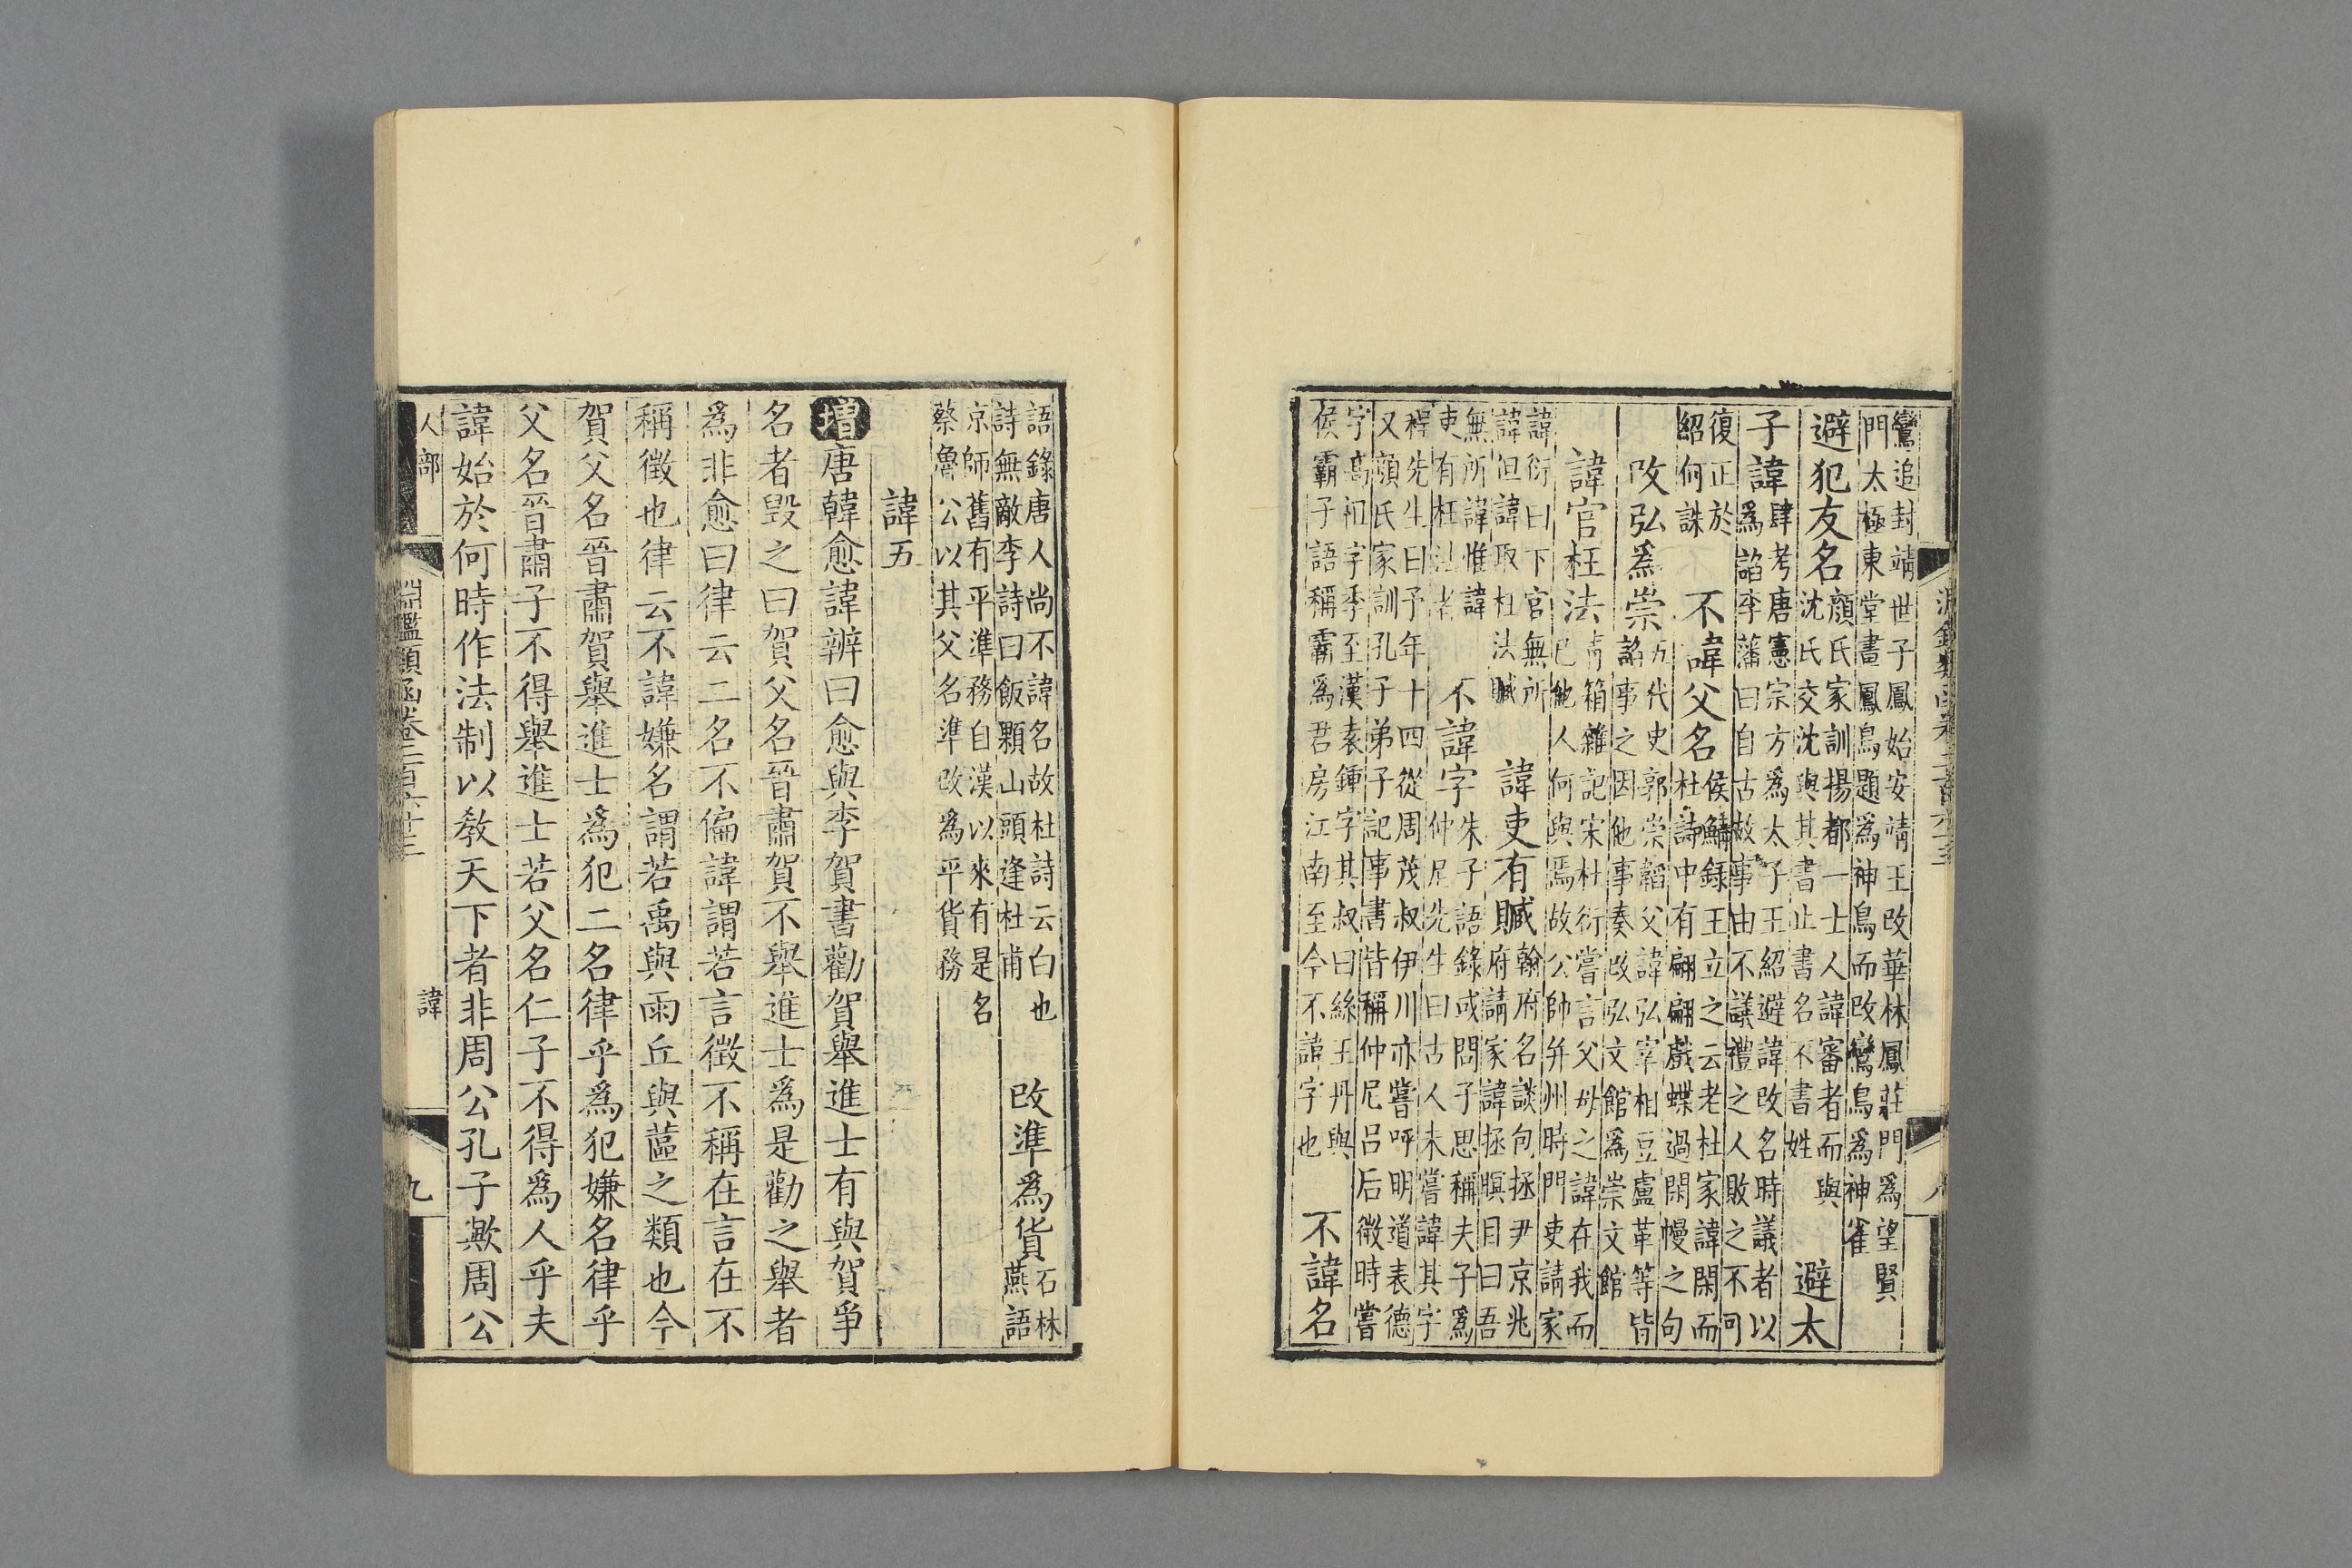 淵鑑類函卷二百六十三
八
鸞追封靖世子鳳始安靖王改華林鳳莊門爲望賢
門太極東堂畫鳳鳥題爲神鳥而改鸞鳥爲神雀
避犯友名
顏氏家訓揚都一士人諱審者而與
沈氏交沈與其書止書名不書姓
避太
子諱
肆考唐憲宗方爲太子王紹避諱改名時議者以
爲諂李藩曰自古故事由不議禮之人敗之不可
復正於
紹何誅
不諱父名
侯鯖錄王立之云老杜家諱閑而
杜詩中有翩翩戲蝶過閑幔之句
改弘爲崇
五代史郭崇韜父諱弘宰相豆盧革等皆
諂事之因他事奏改弘文館爲崇文館
諱官枉法
青箱雜記宋杜衍嘗言父母之諱在我而
已他人何與焉故公帥并州時門吏請家
諱衍曰下官無所
諱但諱取枉法贓
諱吏有贓
翰府名談包拯尹京兆
府請家諱拯瞑目曰吾
無所諱惟諱
吏有枉法者
不諱字
朱子語錄或問子思稱夫子爲
仲尼先生曰古人未嘗諱其字
程先生曰予年十四從周茂叔伊川亦嘗呼明道表德
又顏氏家訓孔子弟子記事書皆稱仲尼呂后微時嘗
字高祖字季至漢袁鍾字其叔曰絲王丹與
侯霸子語稱霸爲君房江南至今不諱字也
不諱名
語錄唐人尚不諱名故杜詩云白也
詩無敵李詩曰飯顆山頭逢杜甫
改準爲貨
石林
燕語
京師舊有平準務自漢以來有是名
蔡魯公以其父名準改爲平貨務
諱五
增唐韓愈諱辨曰愈與李賀書勸賀舉進士有與賀爭
名者毀之曰賀父名晉肅賀不舉進士爲是勸之舉者
爲非愈曰律云二名不偏諱謂若言徵不稱在言在不
稱徵也律云不諱嫌名謂若禹與雨丘與蓲之類也今
賀父名晉肅賀舉進士爲犯二名律乎爲犯嫌名律乎
父名晉肅子不得舉進士若父名仁子不得爲人乎夫
諱始於何時作法制以敎天下者非周公孔子歟周公
人部
諱
淵鑑類函卷二百六十三
九